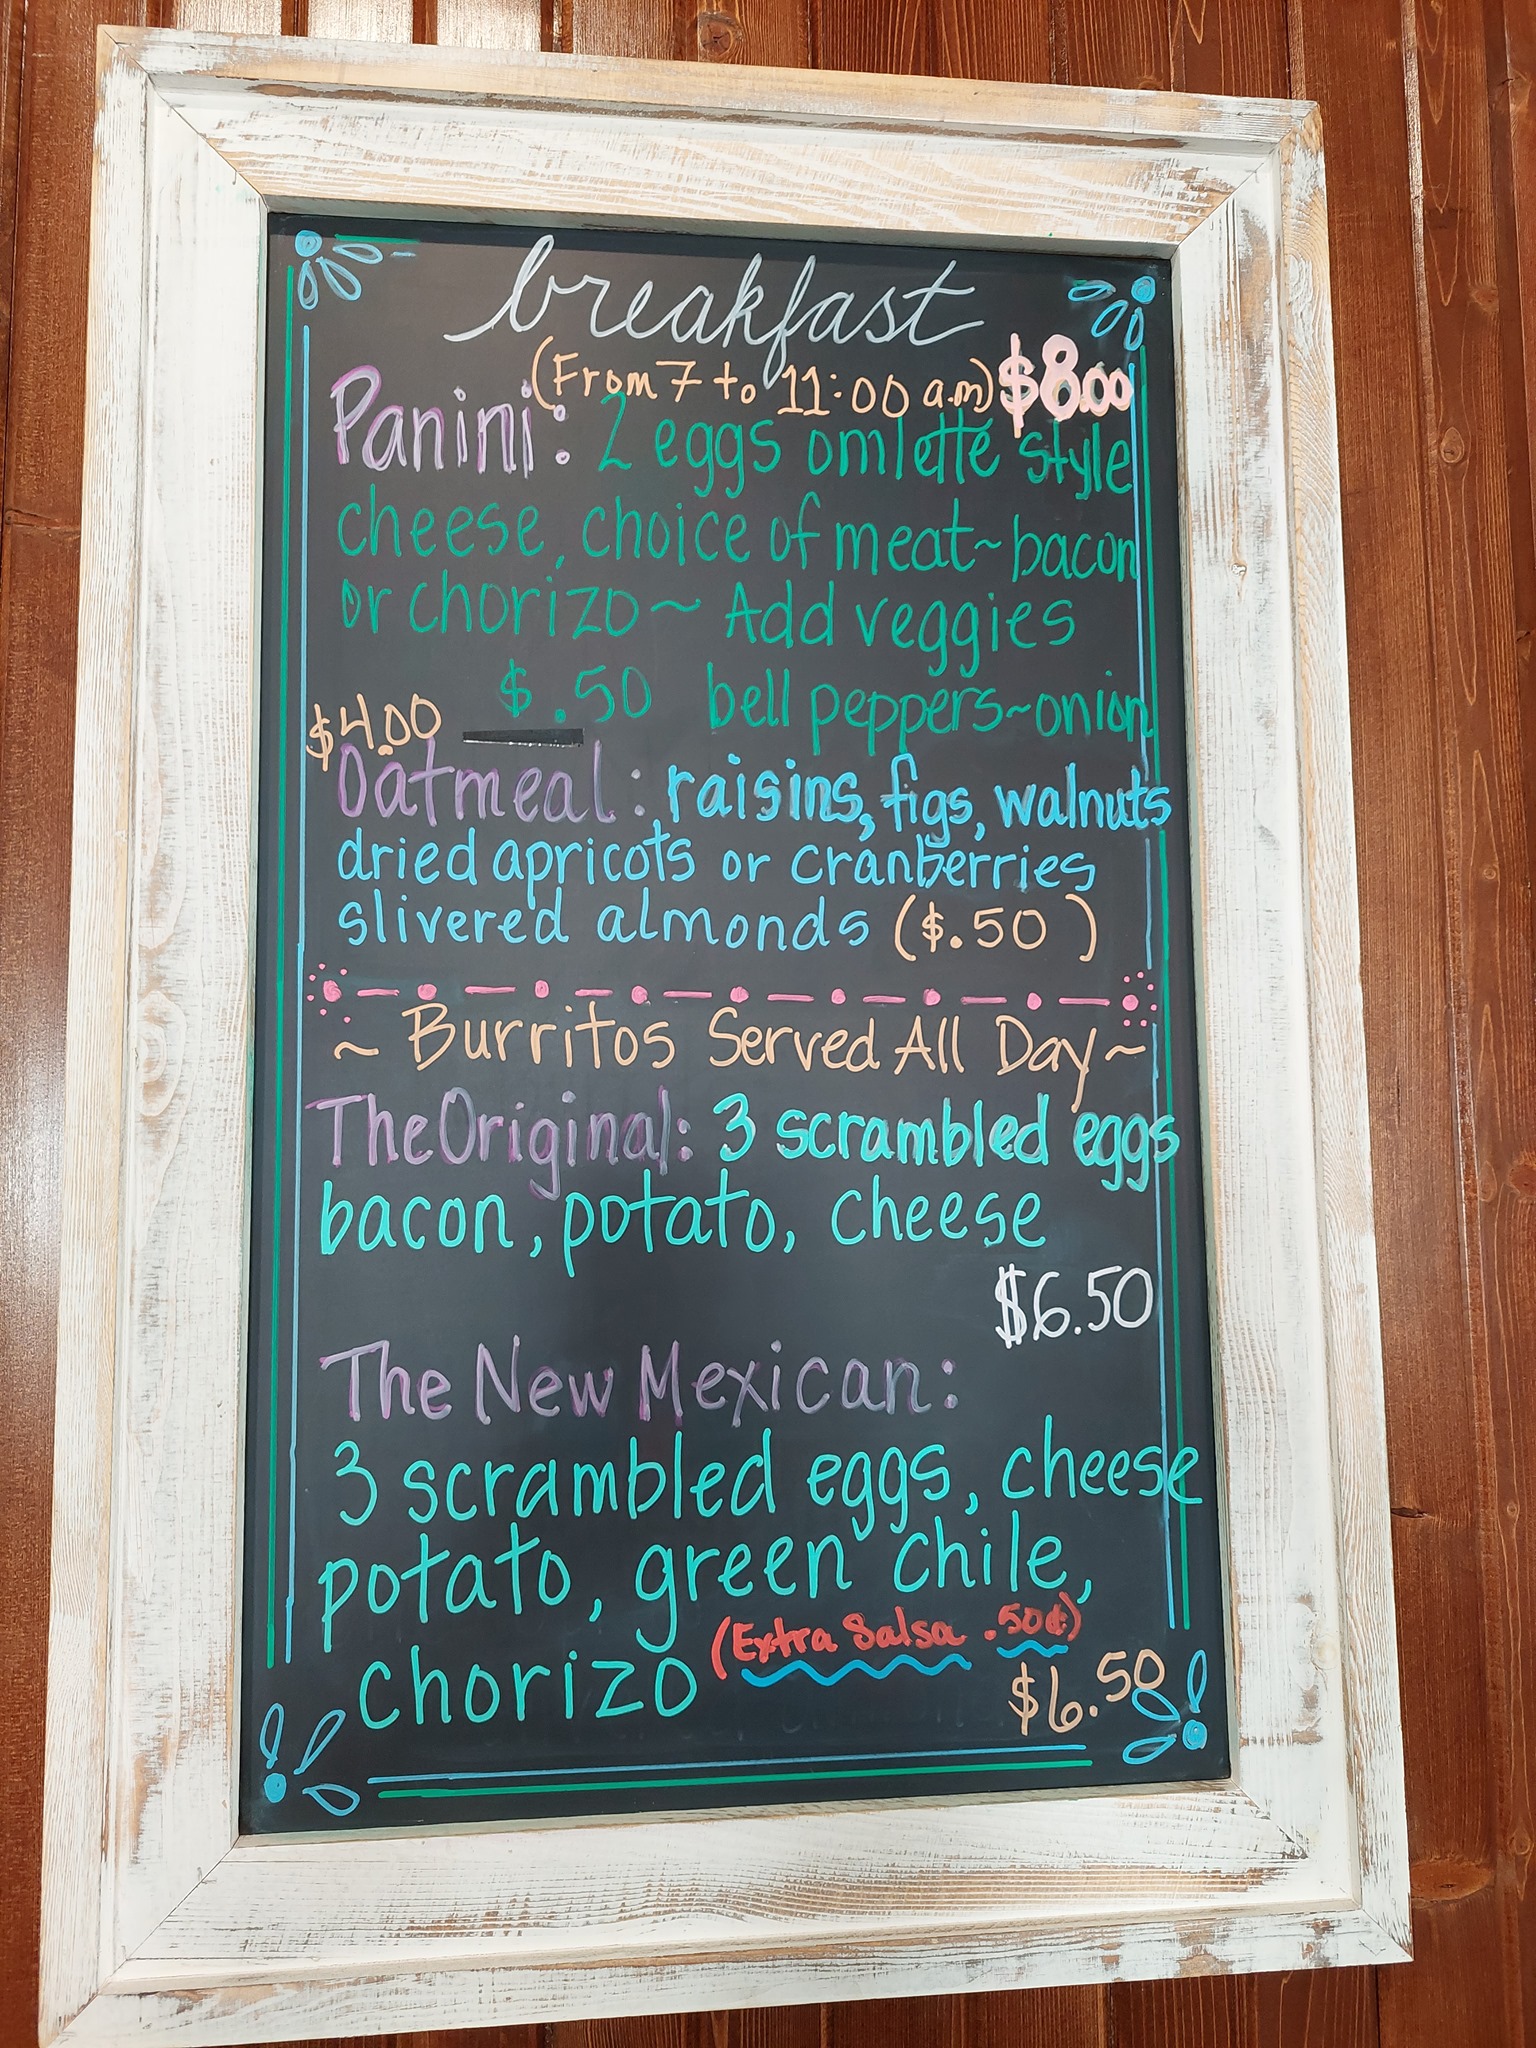 breakfast
(From 7 to 11:00 a.m) $8.00
Panini: 2 eggs omlette style
cheese, choice of meat~bacon
or chorizo ~ Add veggies
$.50 bell peppers~onion
$4.00
Oatmeal: raisins, figs, walnuts
dried apricots or cranberries
slivered almonds ($.50)
~ Burritos Served All Day ~
The Original: 3 scrambled eggs
bacon, potato, cheese
$6.50
The New Mexican:
3 scrambled eggs, cheese
potato, green chile,
(Extra Salsa .50¢)
chorizo
$6.50